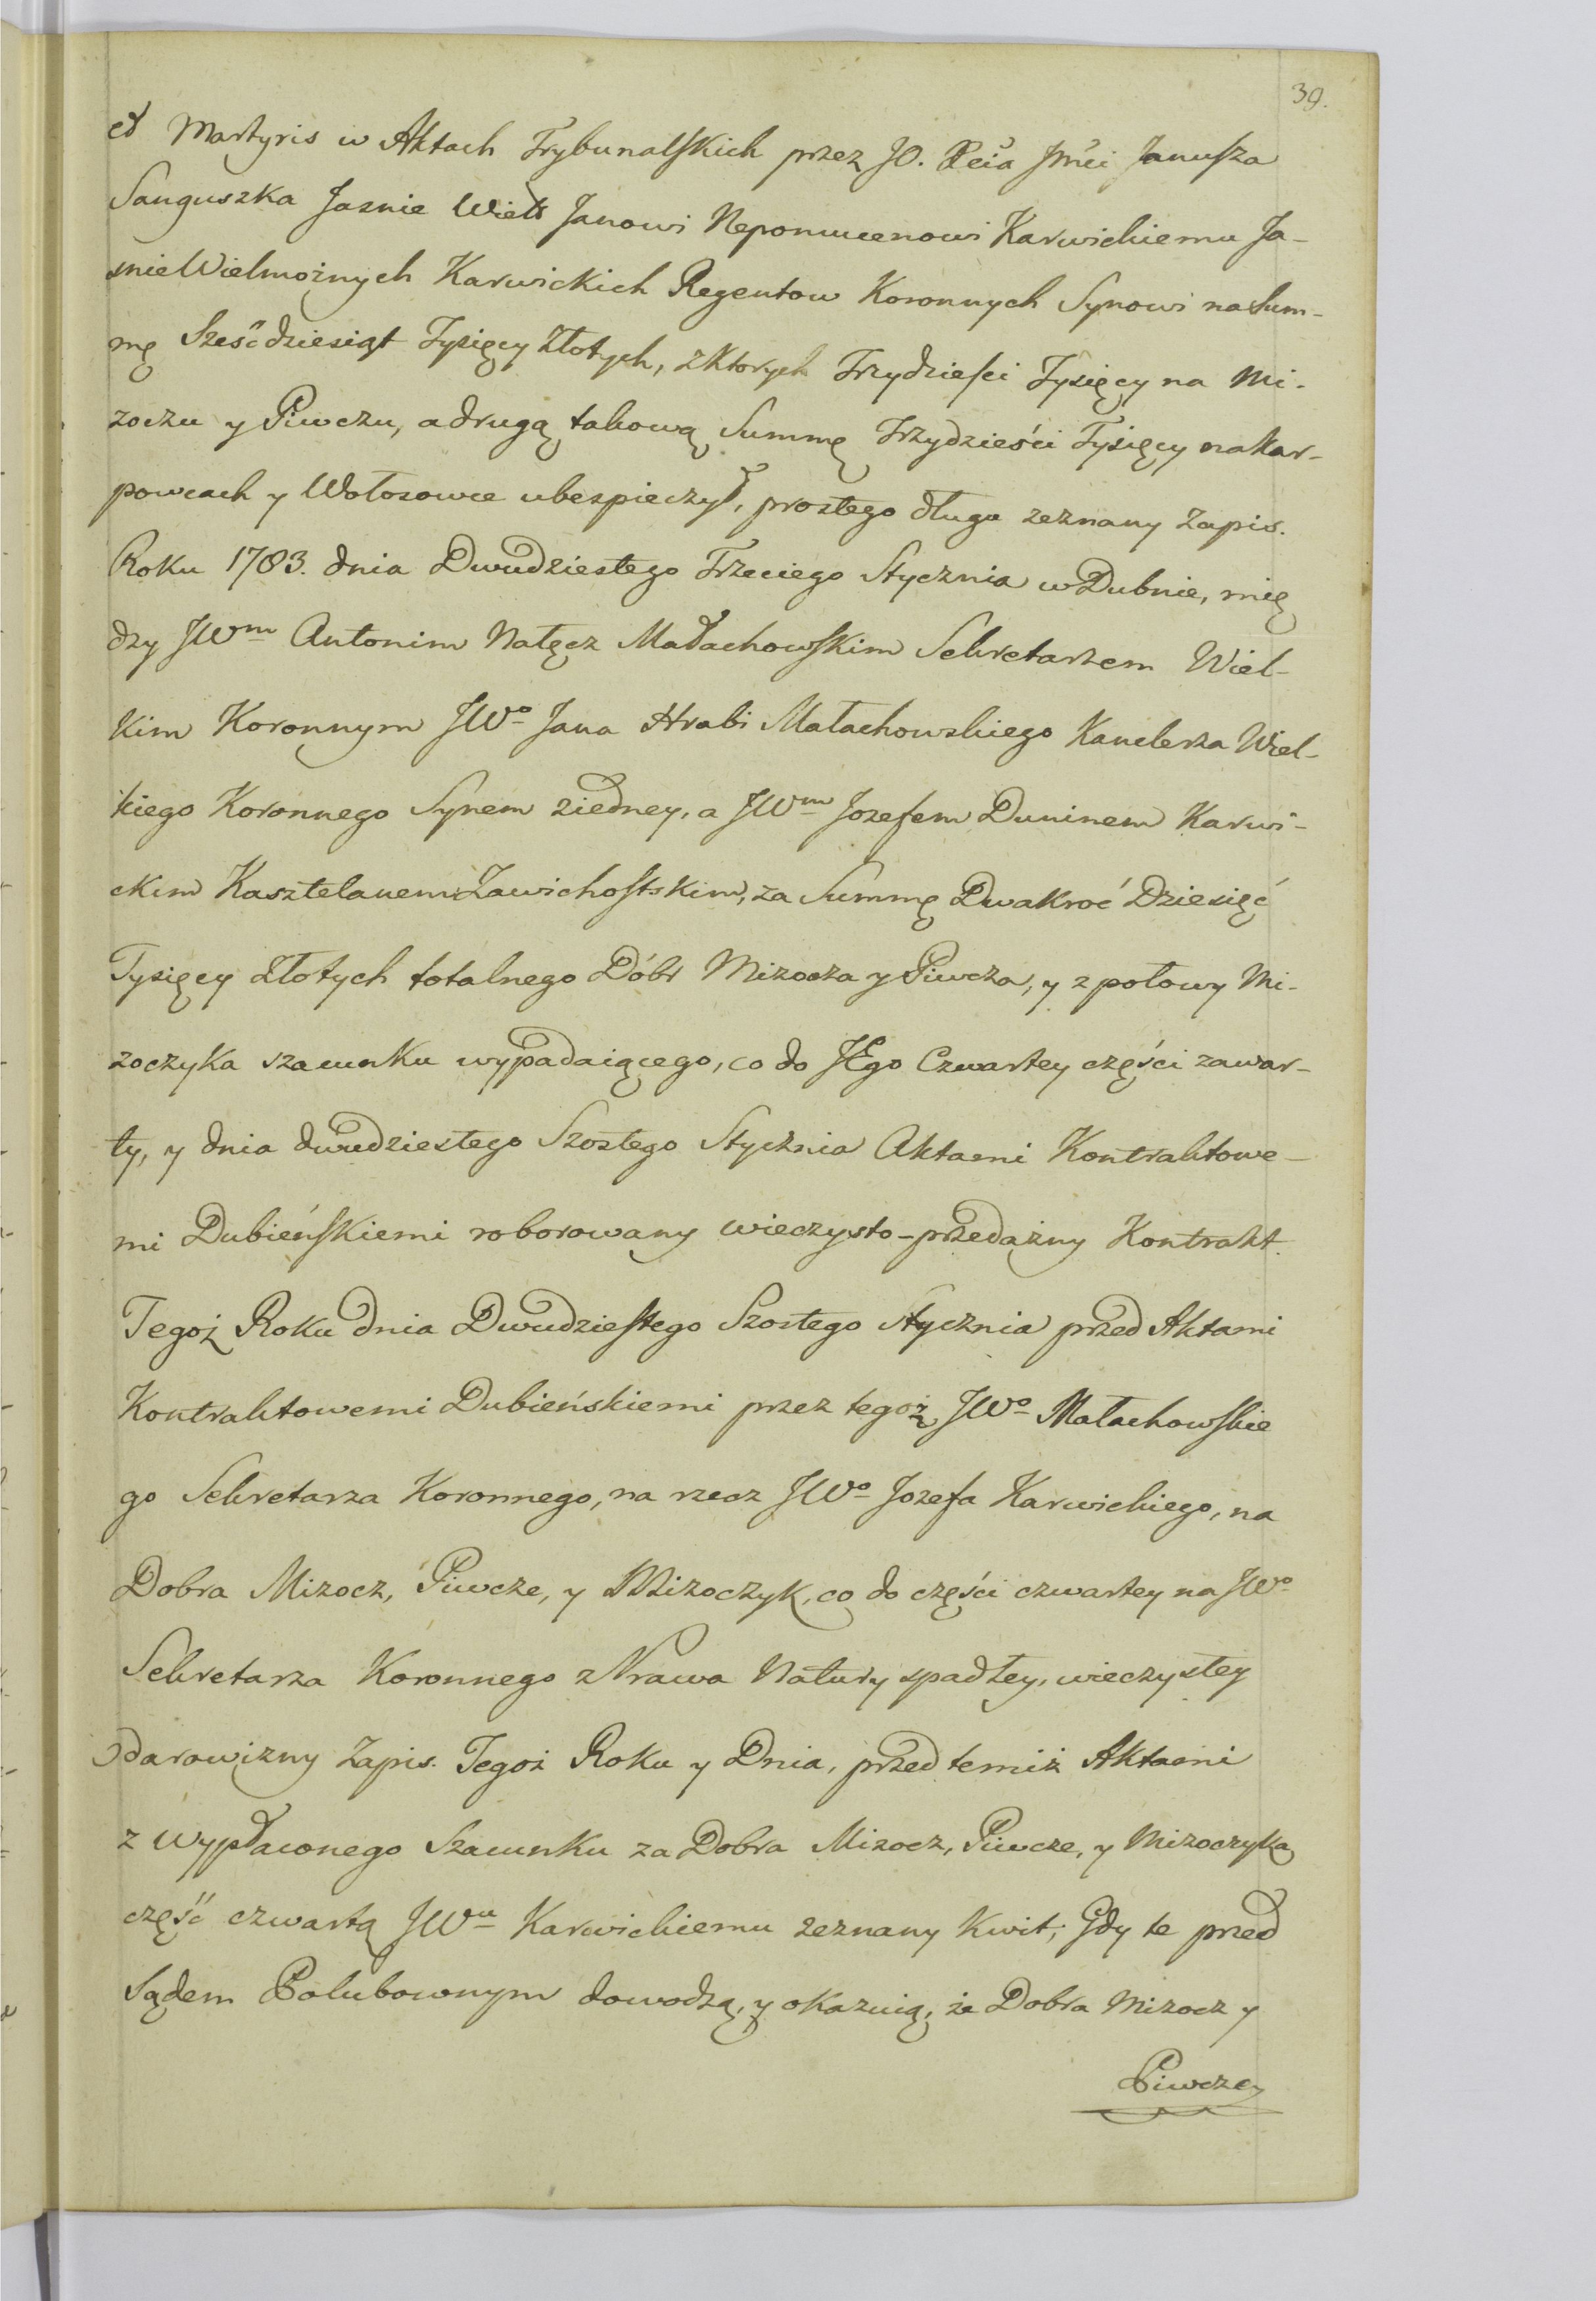 39.
et Martyris w Aktach Trybunalskich przez JO. Xcia Jmci Janusza
Sanguszka Jasnie Wielo Janowi Nepomucenowi Karwickiemu Ja-
snie Wielmożnych Karwickich Regentow Koronnych Synowi na Sum-
mę Sześcdziesiąt Tysięcy Złotych, z Ktorych Trzydziesci Tysięcy na Mi-
zoczu y Piwczu, a drugą takową Summę Trzydzieści Tysięcy na Kar-
powcach y Wołosowce ubespieczył, prostego długu zeznany Zapis.
Roku 1783. dnia Dwudziestego Trzeciego Stycznia w Dubnie, mię
dzy JWm Antonim Nałęcz Małachowskim Sekretarzem Wiel-
kim Koronnym JWo Jana Hrabi Małachowskiego Kanclerza Wiel-
kiego Koronnego Synem z iedney, a JWm Jozefem Duninem Karwi-
ckim Kasztelanem Zawichostskim, za Summę Dwakroć Dziesięć
Tysięcy Złotych totalnego Dóbr Mizocza y Piwcza, y z połowy Mi-
zoczyka szacunku wypadaiącego, co do JEgo Czwartey części zawar-
ty, y dnia dwudziestego Szostego Stycznia Aktami Kontraktowe-
mi Dubieńskiemi roborowany wieczysto-przedażny Kontrakt.
Tegoż Roku dnia Dwudziestego Szostego Stycznia przed Aktami
Kontraktowemi Dubieńskiemi przez tegoż JWo Małachowskie
go Sekretarza Koronnego, na rzecz JWo Jozefa Karwickiego, na
Dobra Mizocz, Piwcze, y Mizoczyk, co do części czwartey na JWo
Sekretarza Koronnego z Prawa Natury spadłey, wieczystey
darowizny Zapis. Tegoż Roku y Dnia, przed temiż Aktami
z wypłaconego Szacunku za Dobra Mizocz, Piwcze, y Mizoczyka
część czwartą JWu Karwickiemu zeznany Kwit; Gdy te przed
Sądem Polubownym dowodzą, y okazuią, że Dobra Mizocz y
Piwcze